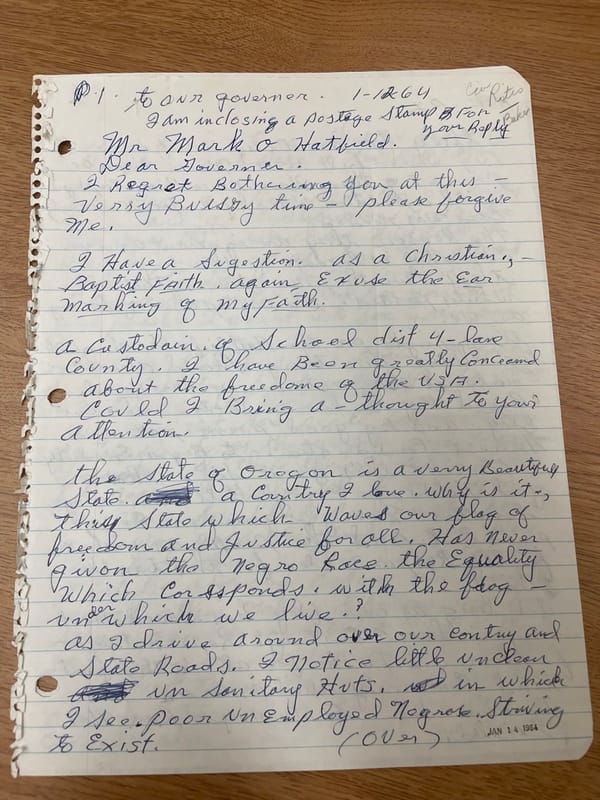 P.1. to our governer. 1-12-64
Civ
Rites
Baker
I am inclosing a postage stamp For
your Reply
Mr Mark O Hatfield.
Dear Governer.
I Regret Bothering you at this -
Verry Buissy time - please forgive
Me.
I Have a Sugestion. as a Christian., -
Baptist Faith. again Exuse the Ear
Marking of my Faith.
a Custodain. of School dist 4 - lane
County. I have Been greatly Concearnd
about the freedome of the USA.
Could I Bring a - thought to your
attention.
the State of Oregon is a verry Beautyfull
State. a Country I love. why is it.,
this State which Waves our flag of
freedom and Justice for all. Has never
given the Negro Race. the Equality
which Corsponds. with the flag -
under which we live.?
as I drive around over our contry and
State Roads. I Notice little unclean
un sanitary Huts. in which
I see. poor un Employed Negroe. Striving
to Exist.
(Over)
JAN 14 1964